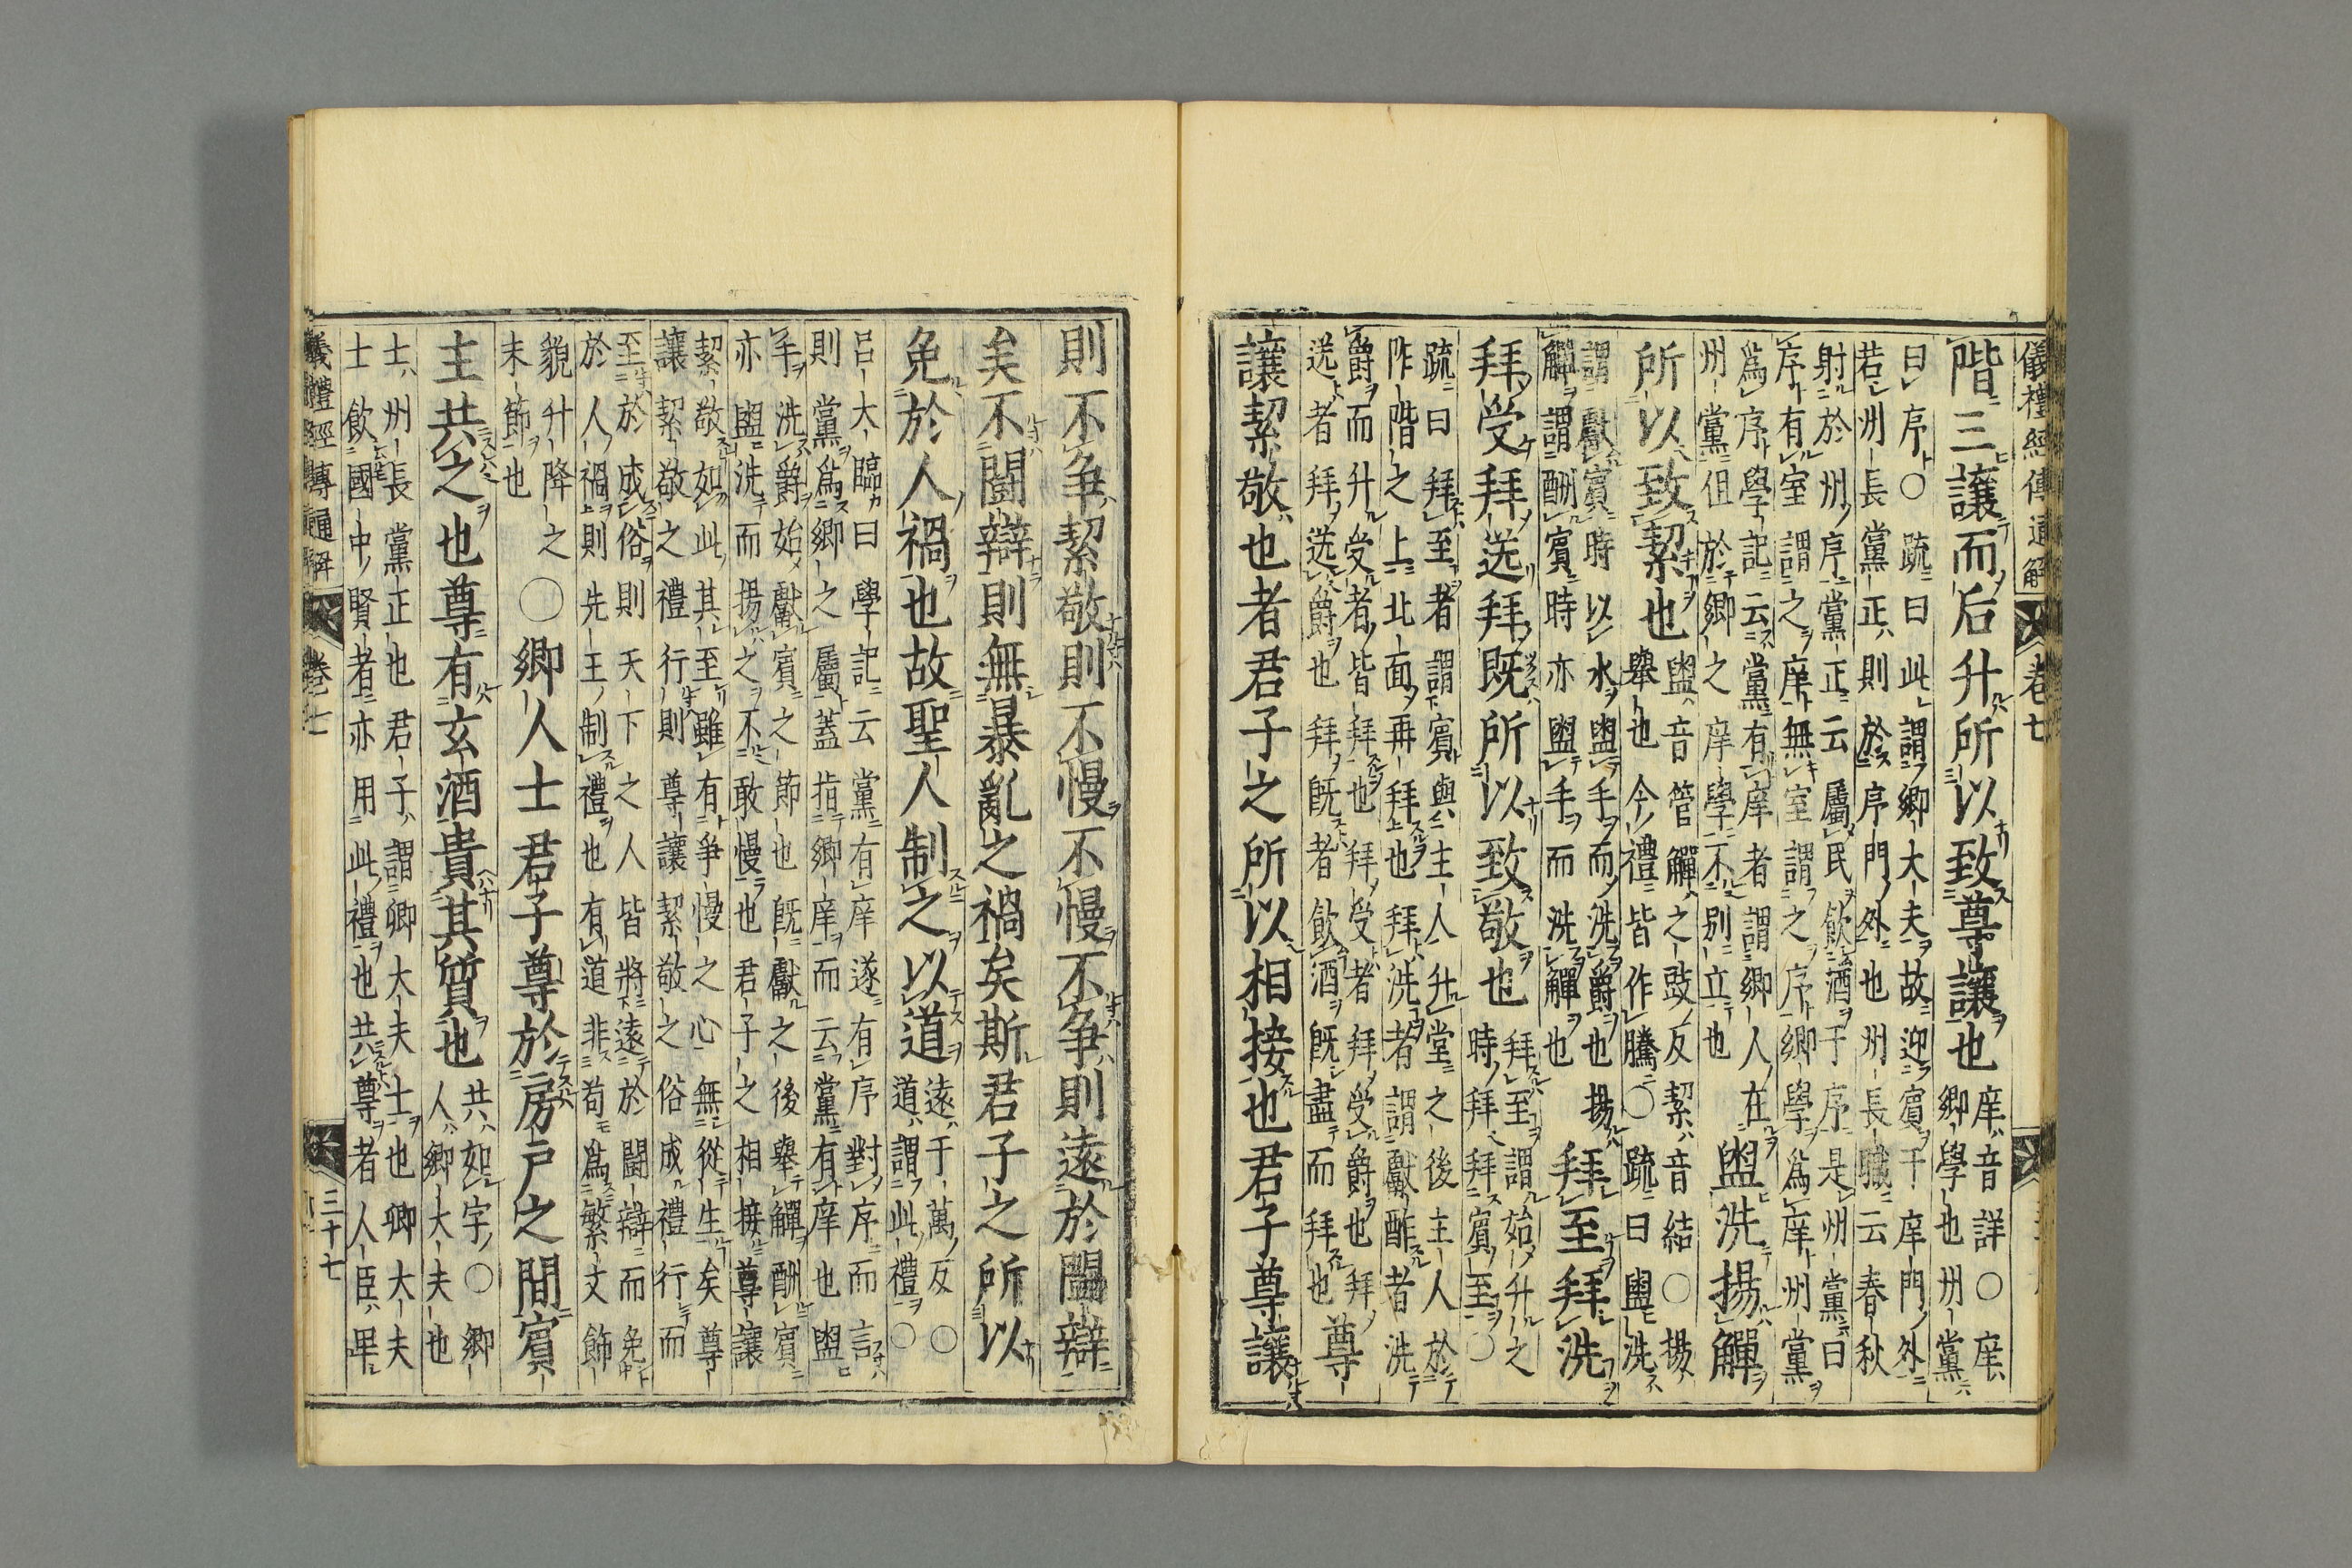 儀禮經傳通解 卷七
階三讓而后升所以致尊讓也
庠音詳○庠
鄉學也州黨
曰序○疏曰此謂鄉大夫故迎賓于庠門外
若州長黨正則於序門外也州長職云春秋
射於州序黨正云屬民飲酒于序是州黨曰
序有室謂之庠無室謂之序鄉學爲庠州黨
爲序學記云黨有庠者謂鄉人在
州黨但於鄉之庠學不別立也
盥洗揚觶
所以致絜也
盥音管觶之豉反絜音結○揚
舉也今禮皆作騰○疏曰盥洗
謂獻賓時以水盥手而洗爵也揚
觶謂酬賓時亦盥手而洗觶也
拜至拜洗
拜受拜送拜既所以致敬也
拜至謂始升之
時拜拜賓至○
疏曰拜至者謂賓與主人升堂之後主人於
阼階之上北面再拜也拜洗者謂獻酢者洗
爵而升受者皆拜也拜受者拜受爵也拜
送者拜送爵也拜既者飲酒既盡而拜也
尊
讓絜敬也者君子之所以相接也君子尊讓
則不爭絜敬則不慢不慢不爭則遠於鬬辯
矣不鬬辯則無暴亂之禍矣斯君子之所以
免於人禍也故聖人制之以道
遠于萬反○
道謂此禮○
呂大臨曰學記云黨有庠遂有序對序而言
則黨爲鄉之屬蓋指鄉庠而云黨有庠也盥
手洗爵始獻賓之節也既獻之後舉觶酬賓
亦盥洗而揚之不敢慢也君子之相接尊讓
絜敬如此其至雖有爭慢之心無從生矣尊
讓絜敬之禮行則尊讓絜敬之俗成禮行而
至於成俗則天下之人皆將遠於鬬辯而免
於人禍則先王制禮也有道非苟爲繁文飾
貌升降之
末節也
○鄉人士君子尊於房戶之間賓
主共之也尊有玄酒貴其質也
共如字○鄉
人鄉大夫也
士州長黨正也君子謂卿大夫士也卿大夫
士飲國中賢者亦用此禮也共尊者人臣卑
儀禮經傳通解 卷七 三十七